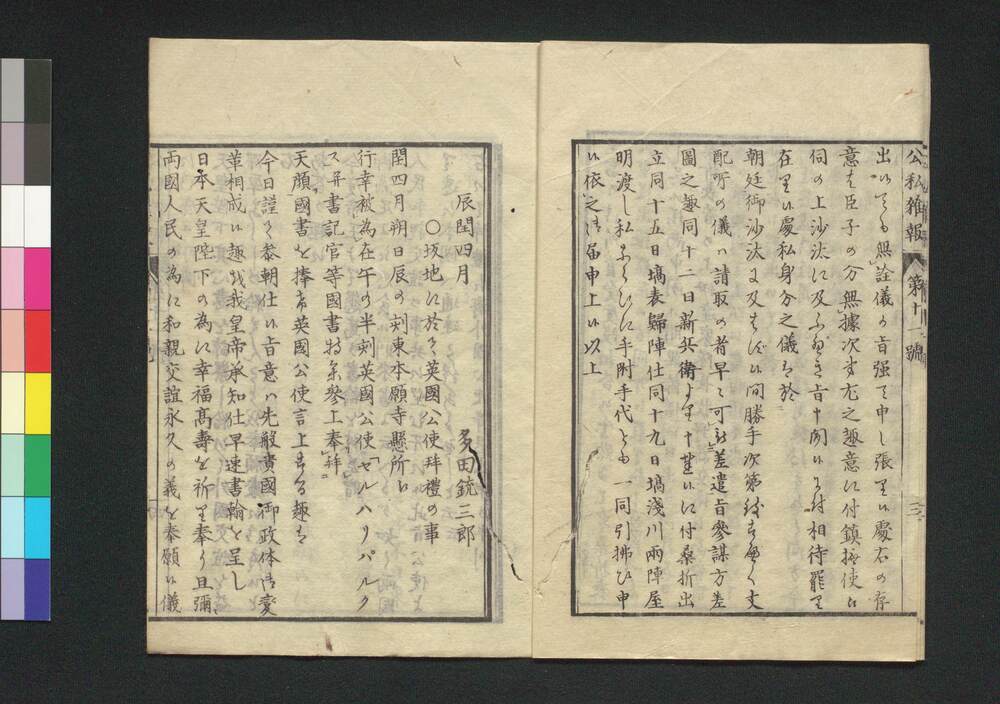 公私雜報 第十一號
出候ても無詮儀の旨强て申し張り候處右の存
意は臣子の分無據次す尤之趣意に付鎮撫使に
伺の上沙汰に及ふ
在り候處私身分之儀は於
朝廷御沙汰に及はす候間勝手次第
配所の儀ハ請取の者早々可差遣旨參謀方差
圖之趣同十二日新兵衛より十
に付桑折出
立同十五日塙表歸陣仕同十九日塙淺川両陣屋
明渡し私ならひに手附手代とも一同引拂ひ申
候依之此届申上候以上
辰閏四月
多田銃三郎
○坂地に於て英國公使拜禮の事
閏四月朔日辰の刻東本願寺懸所に
行幸被為在午の半刻英國公使「セルハリパルク
ス」并書記官等國書持參參上奉拜
天顔國書を捧け英國公使言上する趣は
今日謹て參朝仕候旨意ハ先般貴國御政体御變
革相成候趣我皇帝承知仕早速書翰を呈し
日本天皇陛下の為に幸福高壽を祈り奉り且彌
両國人民の為に和親交誼永久の義を奉願候儀